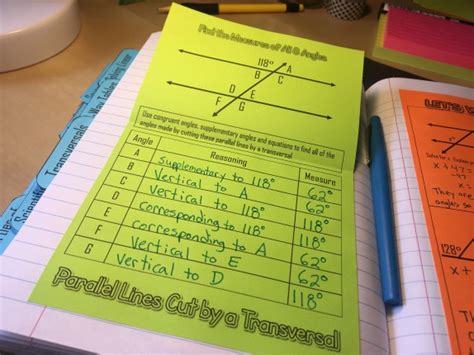 Find the Measures of All 8 Angles.
118° A
B C
D E
F G
Use congruent angles, supplementary angles and equations to find all of the
angles made by cutting these parallel lines by a transversal
Angle Reasoning Measure
A Supplementary to 118° 62°
B Vertical to A 62°
C vertical to 118° 118°
D corresponding to 118° 118°
E corresponding to A 62°
F Vertical to E 62°
G vertical to D 118°
Parallel Lines Cut by a Transversal
Transversals
LETS
x + 47
They are
angles so
128°
x +